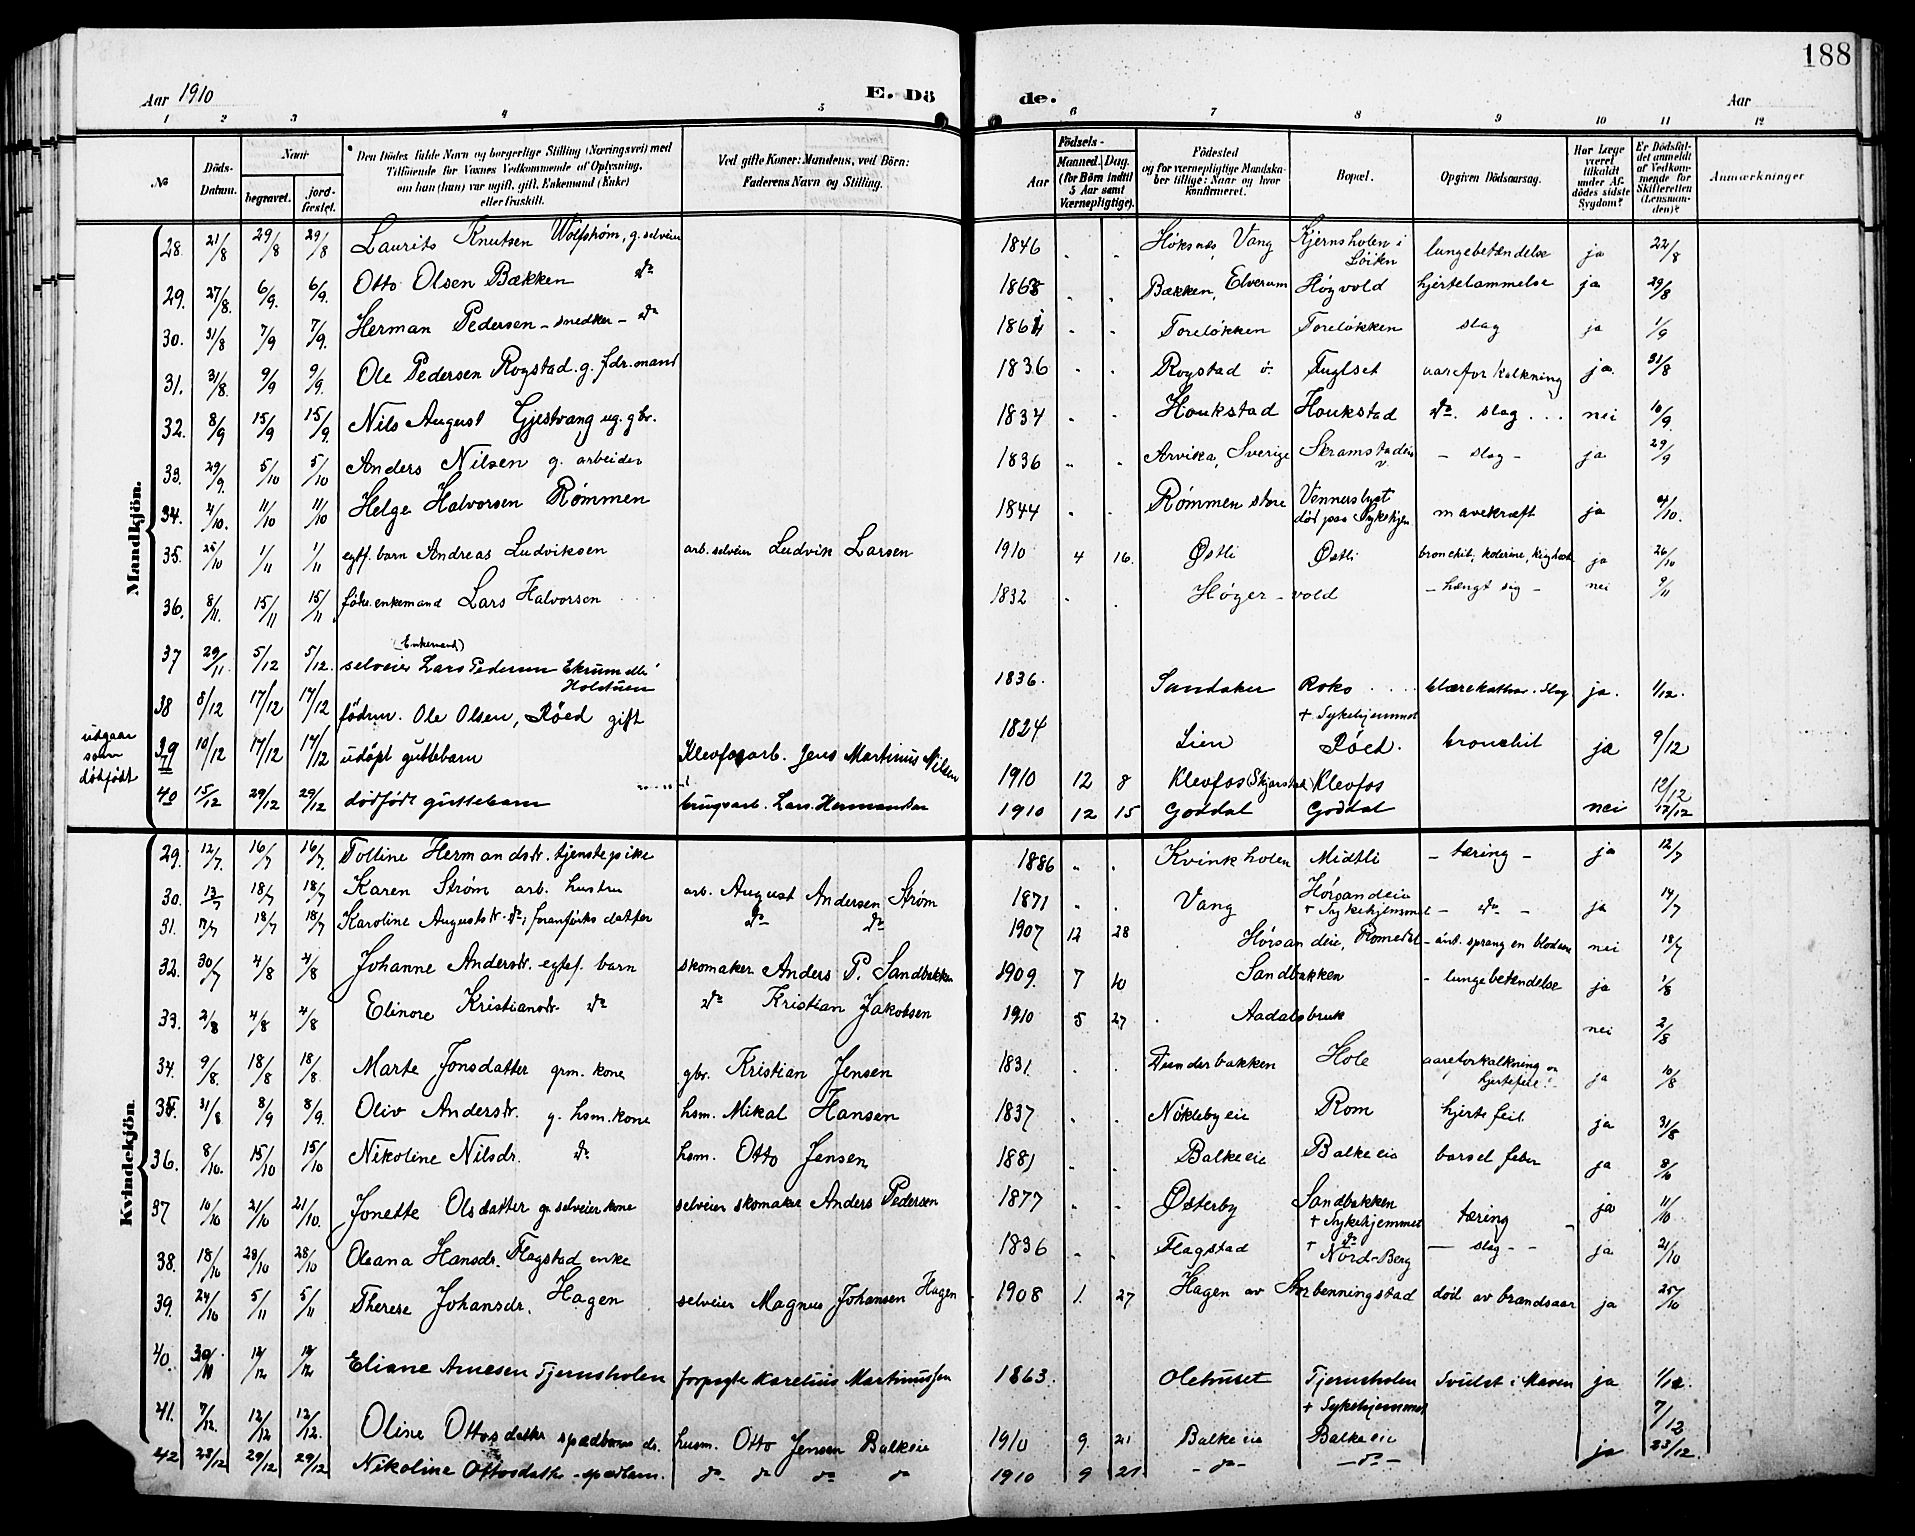 188
Aar 1910 E. Dö de. Aar
1 2 3 4 5 6 7 8 9 10 11 12
No
Döds-Datum.
Naar begravet. jordfæstet.
Den Dödes fulde Navn og borgerlige Stilling (Næringsvei) med Tilföiende for Voxnes Vedkommende af Oplysning, om han (hun) var ugift, gift, Enkemand (Enke) eller fraskilt.
Ved gifte Koner: Mandens, ved Börn: Faderens Navn og Stilling.
Aar
Födsels- Maaned. Dag. (for Börn indtil 5 Aar samt Værnepligtige).
Födested og for værnepligtige Mandskaber tillige: Naar og hvor konfirmeret.
Bopæl.
Opgiven Dödsaarsag.
Har Læge været tilkaldt under Afdödes sidste Sygdom?
Er Dödsfaldet anmeldt af Vedkommende for Skifteretten (Lensmanden)?
Anmærkninger
Mandkjön.
28. 21/8 29/8 29/8 Laurits Knutsen Wolfstrøm, g. selveier 1846 Høksnæs, Vang Kjernsholen i Løiten lungebetændelse ja 22/8
29. 27/8. 6/9. 6/9. Otto Olsen Bækken do 1865 Bækken, Elverum Høgvold hjertelammelse ja 29/8
30. 31/8 7/9 7/9. Herman Pedersen - snedker - do 1861 Toreløkken Toreløkken slag ja 1/9
31. 31/8. 9/9 9/9. Ole Pedersen Rogstad. g. fdr. mand 1836 Rogstad ö. Fuglset aareforkalkning ja. 31/8
32. 8/9 15/9 15/9. Nils August Gjestvang ug. gbr. 1834 Houkstad Houkstad do. slag . . . nei 10/9.
33. 29/9. 5/10 5/10 Anders Nilsen g. arbeider 1836 Arvika, Sverige Skramstadeie v. - slag - ja 29/9
34. 4/10. 11/10 11/10 Helge Halvorsen Rømmen 1844 Rømmen store Vennerslyst död paa Sykehjem mavekræft ja 4/10.
35. 25/10 1/11 1/11 egtf. barn Andreas Ludviksen arb. selveier Ludvik Larsen 1910 4 16. Østli Østli bronchit, kolerine, kighoste ja 26/10
36. 8/11. 15/11 15/11 föds. enkemand Lars Halvorsen 1832 Høger - vold - hængt sig - nei 9/11
37 29/11. 5/12 5/12. selveier (Enkemand) Lars Pedersen Ekrum elle Holstuen 1836. Sandaker Roko + Sykehjemmet blærekathar. slag. ja. 1/12.
38 8/12 17/12 17/12 födrm. Ole Olsen, Røed gift 1824. Lien Røed. bronchit ja 9/12
udgaar som dödfödt
39 10/12 17/12 17/12 udöpt guttebarn Klevfosarb. Jens Martinius Nilsen 1910 12 8 Klevfos (Skjærstad) Klevfos 12/12
40 15/12 29/12 29/12 dödfödt guttebarn brugsarb. Lars Hermansen 1910 12 15 Goddal Goddal nei 17/12
Kvindekjön.
29. 12/7. 16/7 16/7. Tolline Hermandsdr. tjenestepike 1886 Kvinkholen Midtli - tæring - ja 12/7
30. 13/7 18/7 18/7. Karen Strøm arb. hustru arb. August Andersen Strøm 1871 Vang Hørsandeie + Sykehjemmet - do - ja 14/7
31. 17/7 18/7 18/7 Karoline Augustdr. do, foranförtes datter do do 1907 12 28 Hørsandeie, Romedal - ant. sprang en blodaare nei 18/7
32. 30/7 4/8 4/8 Johanne Andersdr. egtef. barn skomaker Anders P. Sandbakken 1909. 7 10 Sandbakken - lungebetændelse ja 1/8
33. 2/8 4/8 4/8 Elinore Kristiansdr. do do Kristian Jakobsen 1910 5 27 Aadalsbruk nei 2/8
34. 9/8. 18/8 18/8. Marte Jonsdatter grm. kone gbr. Kristian Jensen 1831. Dunderbakken Hole aareforkalkning og hjertefeil. ja 10/8
35. 31/8 8/9 8/9. Oliv Andersdr. g. hsm. kone hsm. Mikal Hansen 1837 Nøklebyeie Rom hjertefeil ja 31/8
36. 8/10. 15/10 15/10 Nikoline Nilsdr. do hsm. Otto Jensen 1881 Balkeeie Balkeeie barselfeber ja 8/10
37 10/10 21/10 21/10. Jonette Olsdatter g. selveier kone selveier skomaker Anders Pedersen 1877 Østerby Sandbakken + Sykehjemmet tæring ja 11/10
38. 18/10 28/10 28/10 Oleana Hansdr. Flagstad enke 1836 Flagstad + do Nord-Berg - slag - - ja 21/10
39. 24/10 5/11 5/11 Therese Johansdr. Hagen selveier Magnus Johansen Hagen 1908 1. 27 Hagen av Storbenningstad död av brandsaar ja 25/10
40. 30/11 12/12 12/12 Eliane Arnesen Tjernsholen forpagte Karelius Martinussen 1863. Olehuset Tjernsholen + Sykehjemmet Svulst i Maven ja 1/12.
41. 7/12. 12/12 12/12. Oline Ottosdatter spædbarn dr. husm. Otto Jensen Balkeie 1910 9 21 Balkeeie Balkeeie 7/12
42 23/12 29/12 29/12 Nikoline Ottosdatter - spædbarn. do do do do 1910 9 21 - do - - do - ja 23/12.